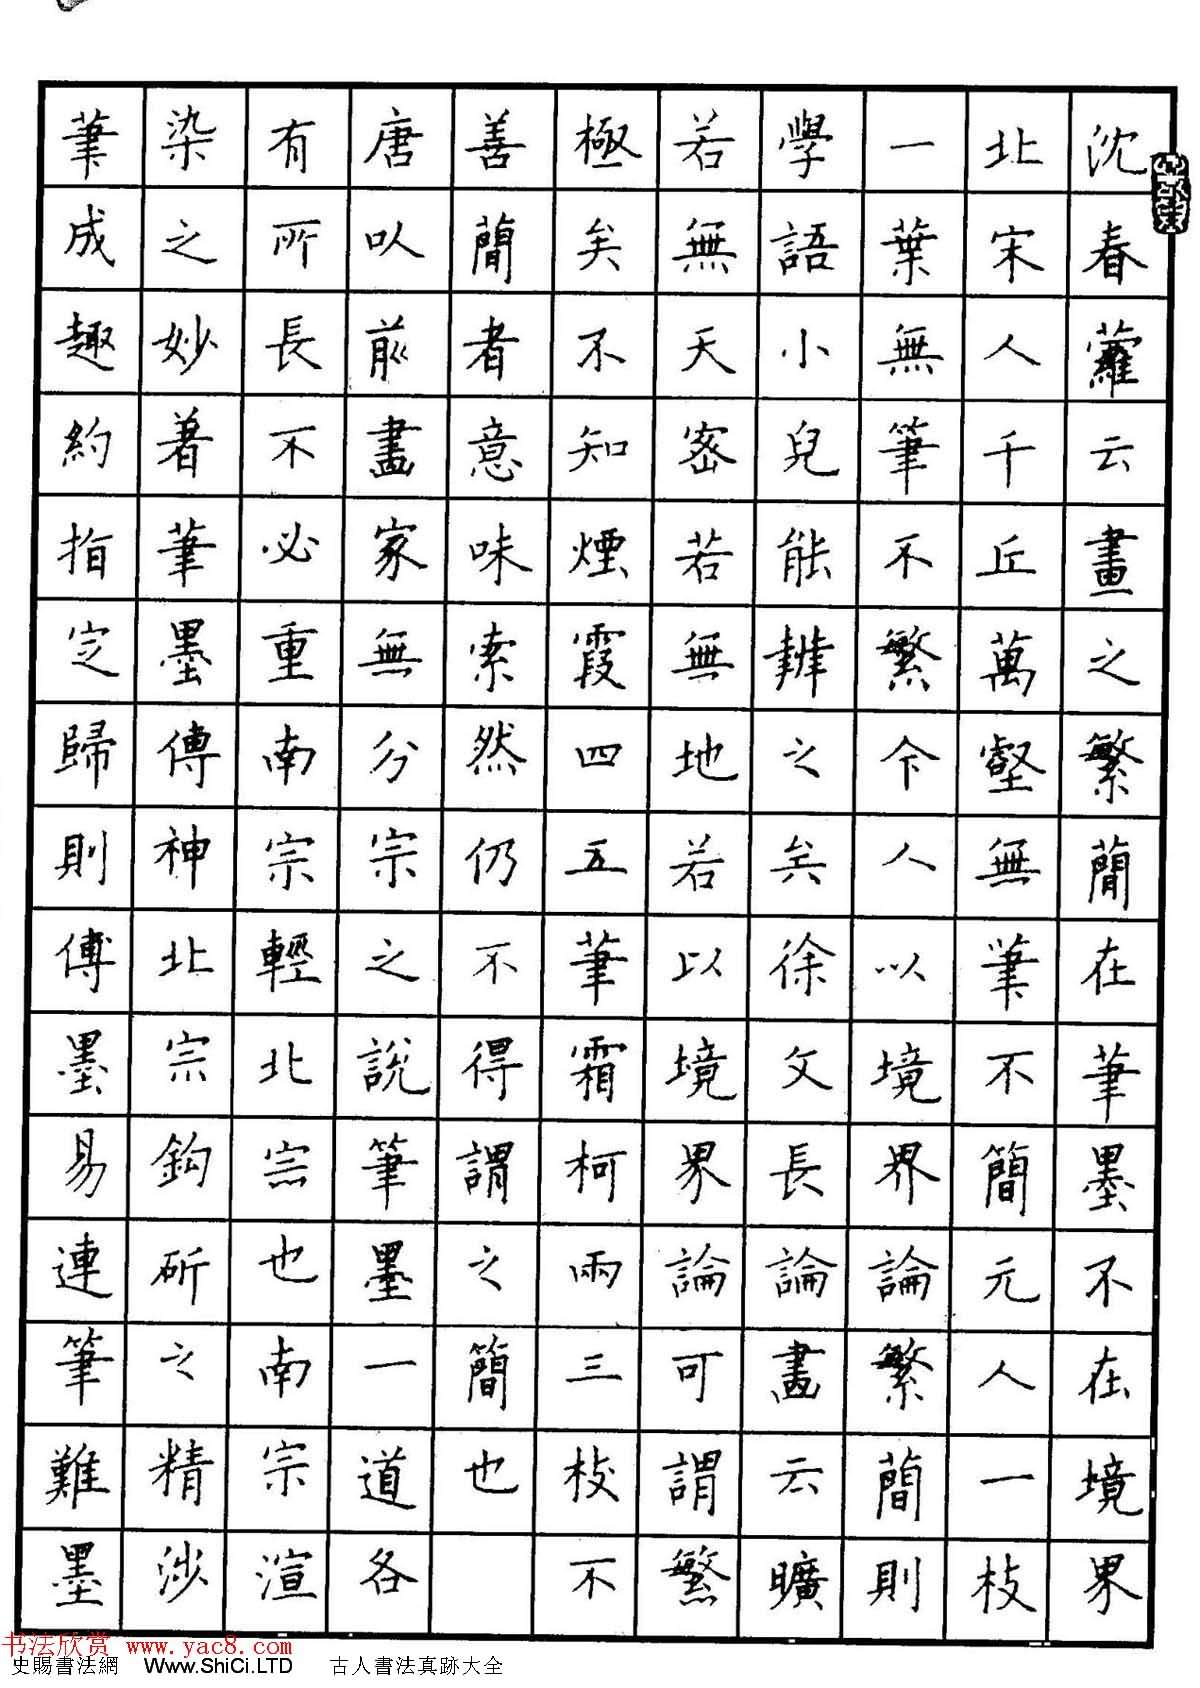 沈春蘿云畫之繁蕳在筆墨不在境界
北宋人千丘萬壑無筆不簡元人一枝
一葉無筆不繁今人以境界論繁蕳則
學語小兒能辨之矣徐文長論畫云曠
若無天密若無地若以境界論可謂繁
極矣不知煙霞四五筆霜柯兩三枝不
善蕳者意味索然仍不得謂之簡也
唐以前畫家無分宗之說筆墨一道各
有所長不必重南宗輕北宗也南宗渲
染之妙着筆墨傳神北宗鈎斫之精涉
筆成趣約指定歸則傳墨易連筆難墨
书法欣赏 www.yac8.com
史賜書法網 Www.ShiCi.LTD 古人書法真跡大全